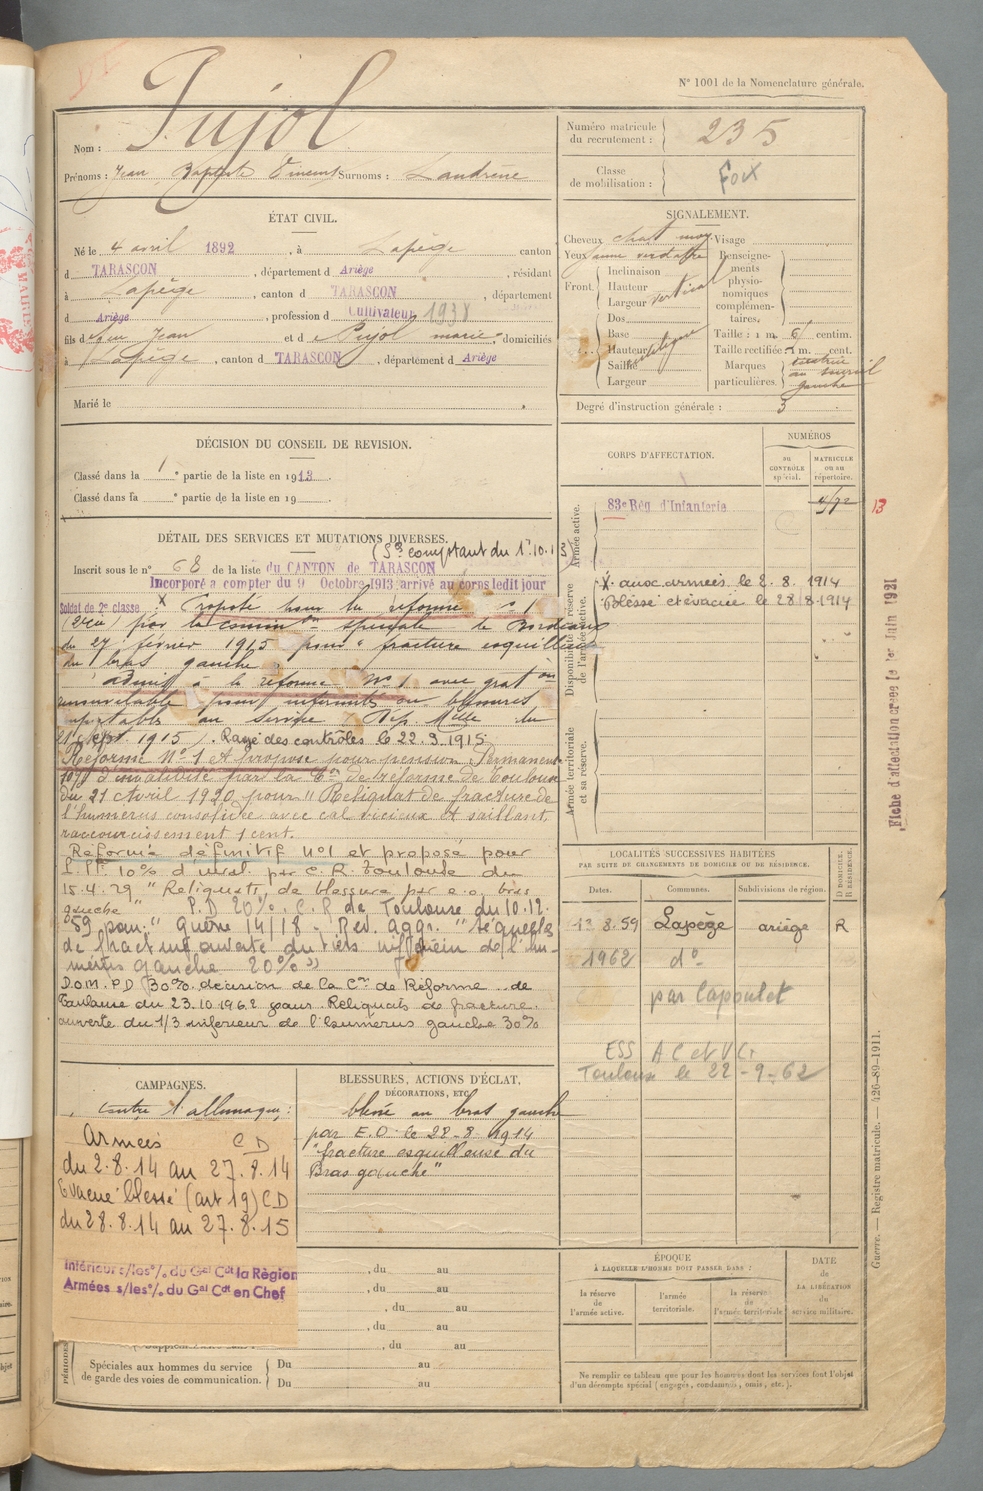 N° 1001 de la Nomenclature générale.
Nom : Pujol
Prénoms : Jean Baptiste Vincent Surnoms : Landrène
Numéro matricule du recrutement : 235
Classe de mobilisation : Foix
ÉTAT CIVIL.
Né le 4 avril 1892, à Lapège canton
d TARASCON, département d Ariège, résidant
à Lapège, canton d TARASCON, département
d Ariège, profession d Cultivateur 1938
fils d feu Jean et d Pujol marie, domiciliés
à Lapège, canton d TARASCON, département d Ariège
Marié le
SIGNALEMENT.
Cheveux chat moy Visage
Yeux jaune verdatre
Renseignements physionomiques complémentaires.
Front.
Inclinaison
Hauteur
Largeur vertical
Dos
Base
Hauteur
Saillie
Largeur
Taille : 1 m. 61 centim.
Taille rectifiée : 1 m. cent.
Marques particulières.
cicatrice
au sourcil
gauche
Degré d'instruction générale : 3
DÉCISION DU CONSEIL DE REVISION.
Classé dans la 1e partie de la liste en 1913
Classé dans la e partie de la liste en 19
DÉTAIL DES SERVICES ET MUTATIONS DIVERSES.
(Sce comptant du 1er.10.13)
Inscrit sous le n° 68 de la liste du CANTON de TARASCON
Incorporé à compter du 9 Octobre 1913 arrivé au corps ledit jour
Soldat de 2e classe X Proposé pour la réforme n° 1
par la commion spéciale de Bordeaux
du 27 février 1915 pour "fracture esquilleuse
du bras gauche"
admis à la réforme N° 1 avec graton
renouvelable pour infirmités ou blessures
imputables au service Dep. Mlle du
1915. Rayé des contrôles le 22.9.1915
Réformé N° 1 et proposé pour pension Permanente
10% d'invalidité par la Con de réforme de Toulouse
du 21 Avril 1920 pour "Reliquat de fracture de
l'humérus consolidée avec cal vicieux et saillant,
raccourcissement 1 cent.
Réformé définitif N°1 et proposé pour
P. Pte 10% d'inval. par C.R. Toulouse du
15.4.29 "Reliquats de blessure par e.o. bras
gauche" P.D 20%. C.R de Toulouse du 10.12.
59 pour "Guerre 14/18 - Rev. aggr. "séquelles
de fracture ouverte du tiers inférieur de l'hu-
mérus gauche 20%"
D.O.M. P.D 30% décision de la Con de Réforme de
Toulouse du 23.10.1962 pour Reliquats de fracture
ouverte du 1/3 inférieur de l'humérus gauche 30%
CORPS D'AFFECTATION.
NUMÉROS
au CONTRÔLE spécial.
MATRICULE ou au répertoire.
Armée active.
83e Rég d'Infanterie
13
Disponibilité et réserve de l'armée active.
X aux armées le 2.8.1914
Blessé et évacué le 28/8.1914
Armée territoriale et sa réserve.
Fiche d'affectation créée le 1er Juin 1921
LOCALITÉS SUCCESSIVES HABITÉES
PAR SUITE DE CHANGEMENTS DE DOMICILE OU DE RÉSIDENCE.
Dates. Communes. Subdivisions de région. D DOMICILE. R RÉSIDENCE.
13.8.59 Lapège ariège R
1962 d°
par Capoulet
ESS AC et VG
Toulouse le 22-9-62
CAMPAGNES.
contre l'allemagne :
Armées CD
du 2.8.14 au 27.8.14
Evacué blessé (art 19) CD
du 28.8.14 au 27.8.15
Intérieur s/les o/. du Gal Cdt la Région
Armées s/les o/. du Gal Cdt en Chef
BLESSURES, ACTIONS D'ÉCLAT, DÉCORATIONS, ETC.
blessé au bras gauche
par E.O. le 28-8-1914
"fracture esquilleuse du
Bras gauche"
, du au
, du au
, du au
, du au
, du au
Spéciales aux hommes du service de garde des voies de communication.
Du au
Du au
ÉPOQUE
À LAQUELLE L'HOMME DOIT PASSER DANS :
la réserve de l'armée active.
l'armée territoriale.
la réserve de l'armée territoriale
DATE de LA LIBÉRATION du service militaire.
Ne remplir ce tableau que pour les hommes dont les services font l'objet
d'un décompte spécial (engagés, condamnés, omis, etc.).
Guerre. — Registre matricule. — 426-89-1911.